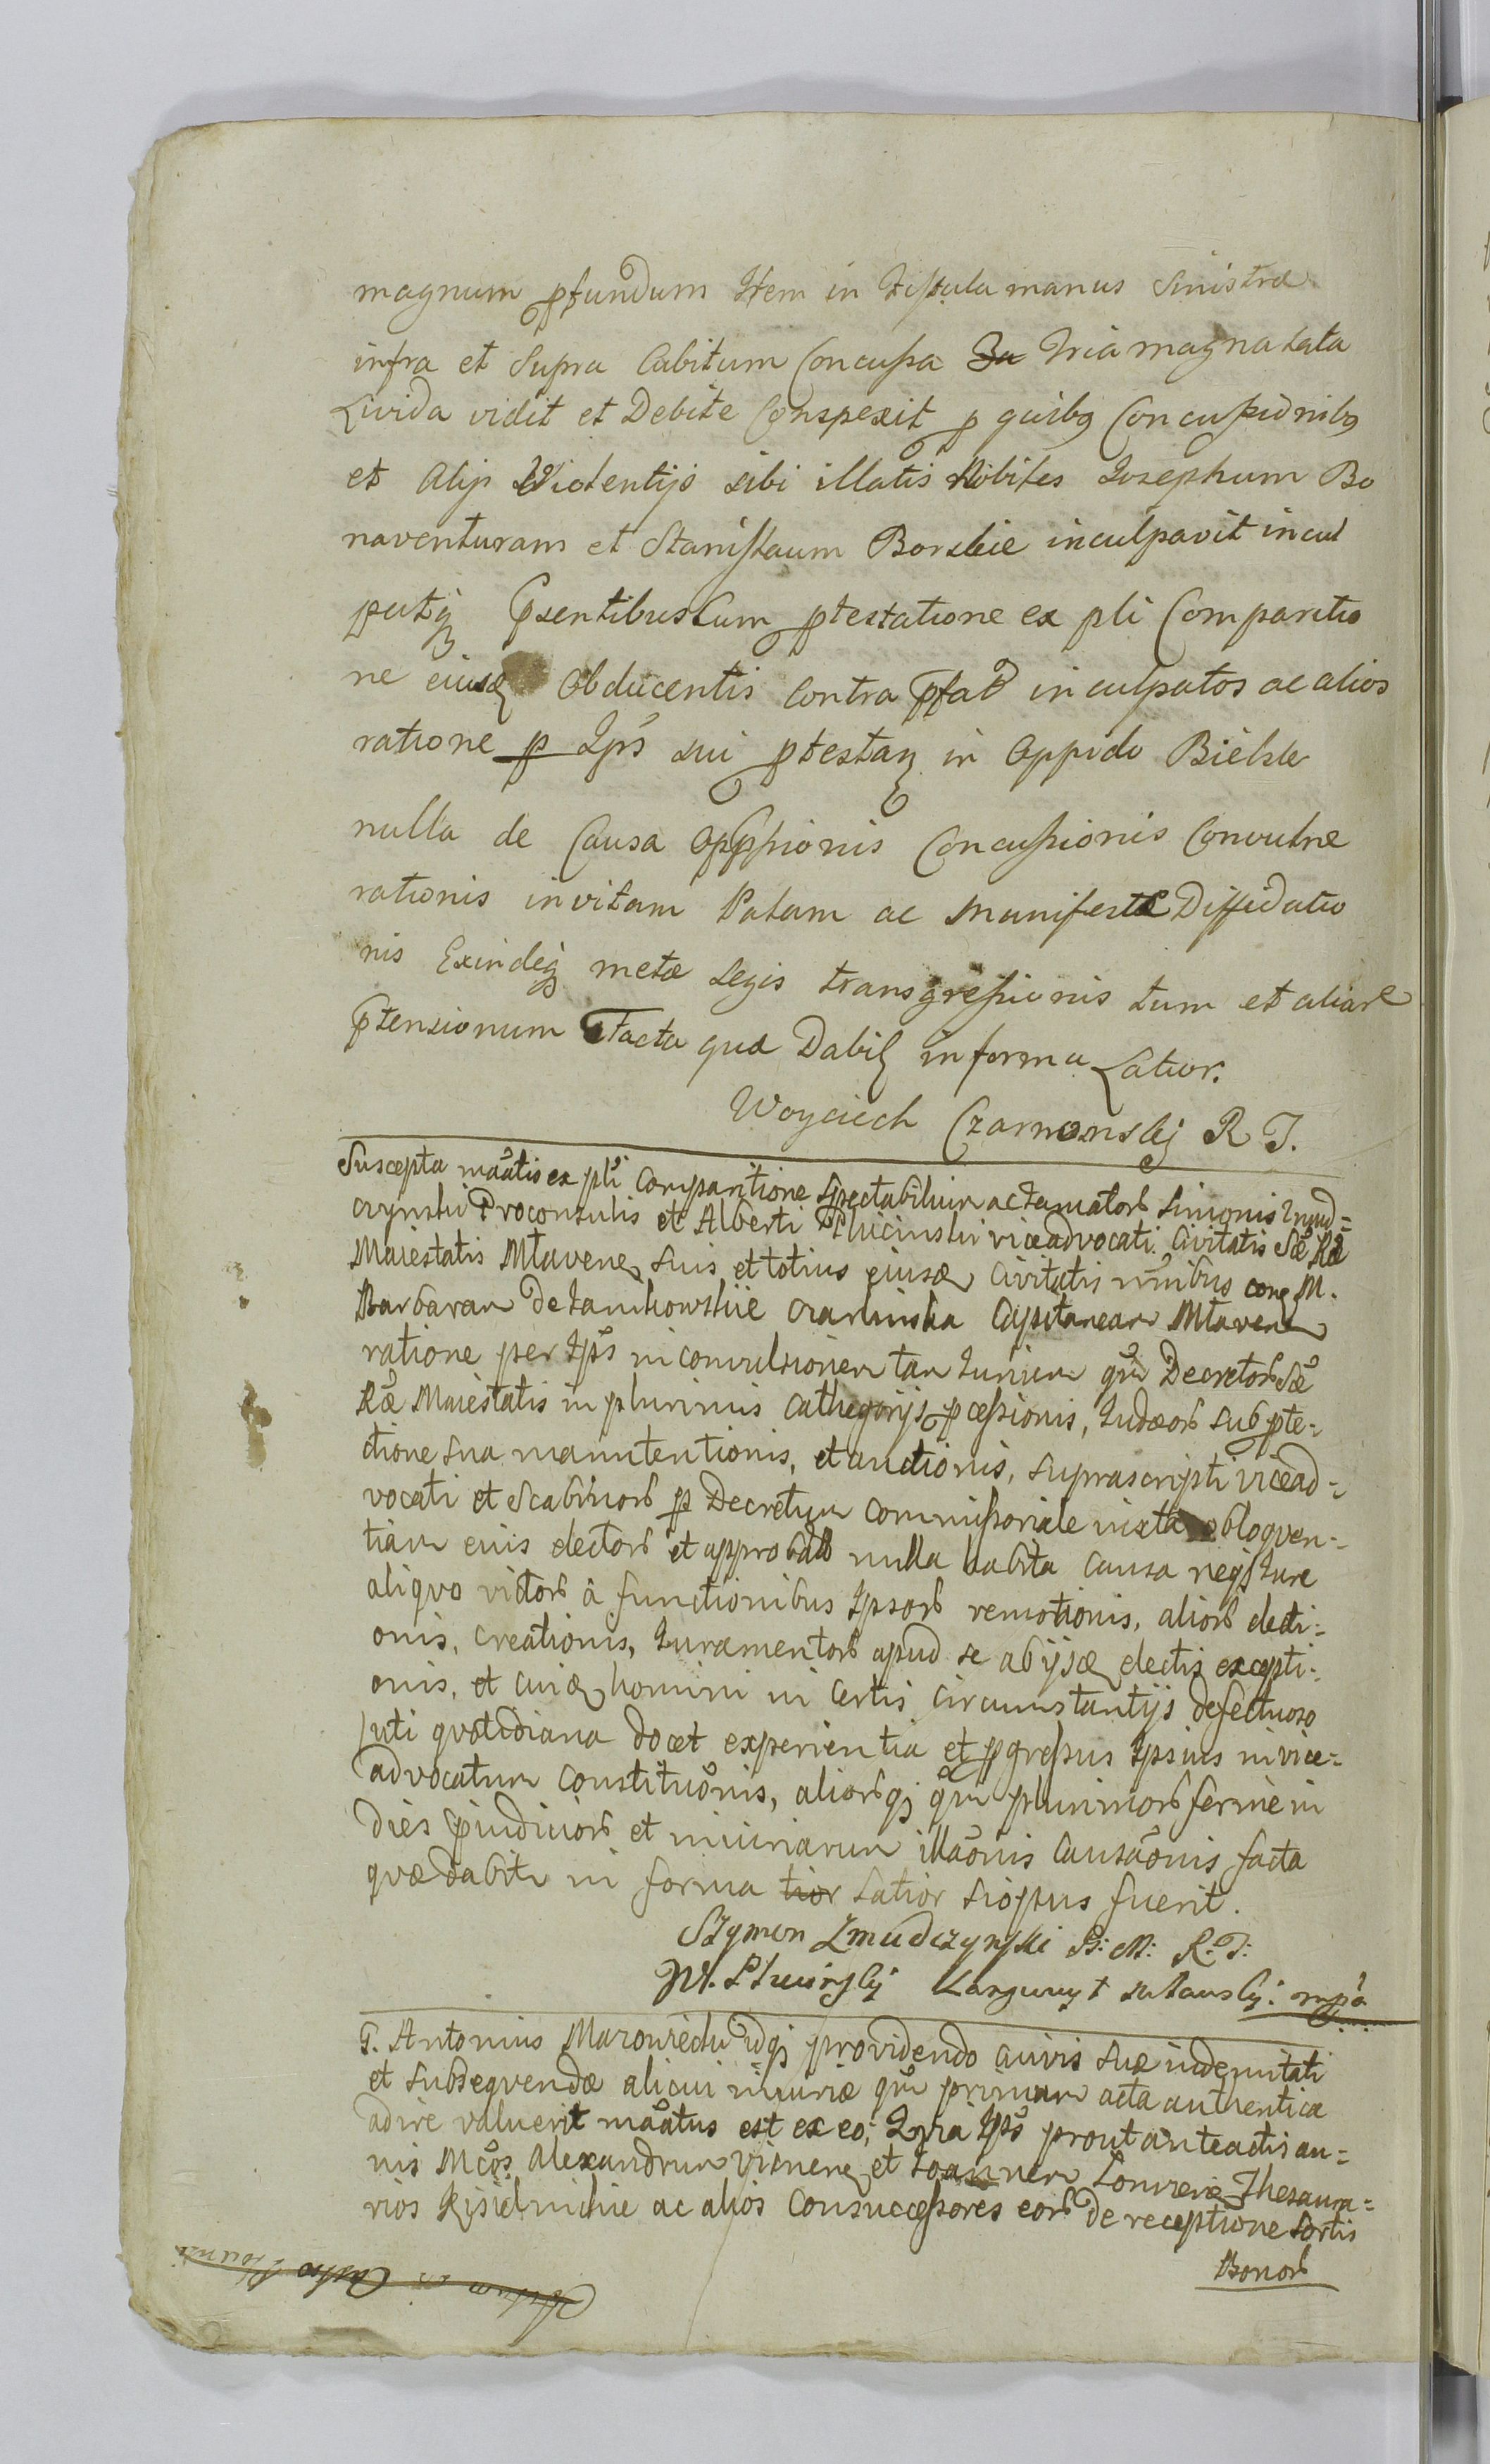 magnum pfundum Item in Fistula manus Sinistræ
infra et Supra Cubitum Concussa Tria magna lata
Livida vidit et Debite Conspexit p quibq Concussionibq
et Alijs Violentijs sibi illatis Nobiles Josephum Bo
naventuram et Stanislaum Borskie inculpavit incul
patq Psentibus Cum ptestatione ex pli Comparitio
ne eiusd Obducentis Contra pfat inculpatos ac alios
ratione p Ips sui ptestan in Oppido Bielsk
nulla de Causa Oppssionis Concussionis Convulne
rationis in vitam Palam ac manifestæ Diffidatio
nis Exindeq metæ Legis transgressionis tum et aliar
Ptensionum Facta quæ Dabit in forma Latior.
Woyciech Czarnomskj R J.
Suscepta mãatis ex pli Comparitione Spectabilium ac Famator Simonis Zmud=
czynski Proconsulis et Alberti Plucinski viceadvocati Civitatis Sæ Ræ
Maiestatis Mlaven Suis et totius eiusd Civitatis nnibus con M.
Barbaram de Zamkowskie Czarlinska Capitaneam Mlaven
ratione per Ips in convulsionem tam Jurium qm Decretor Sæ
Ræ Maiestatis in plurimis Cathegorijs pcessionis, Judæor sub pte=
ctione sua manutentionis, et auctionis, suprascripti vicead=
vocati et Scabinor p Decretum Commissoriale iuxta obloquen=
tiam eius elector et approbator nulla habita causa neq Jure
aliquo victor à functionibus Ipsor remotionis, alior electi=
onis, Creationis, Juramentor apud se ab ijsd electis excepti=
onis, et cuid homini in certis circumstantijs defectuoso
uti quotidiana docet experientia et pgressus Ipsius in vice=
advocatum Constitutionis, aliorq qm plurimor ferme in
dies Piudicior et iniuriarum illãonis Causãonis facta
quæ dabit in forma tior Latior si opus fuerit.
Szymon Zmudczynski B: M: R: J:
W. Plucinskj
G. Antonius Marowiecki idq providendo cuivis suæ indemnitati
et subsequendæ alicui iniuriæ qm primum acta authentica
adire valuerit mãatus est ex eo; Quia Ips prout anteactis an=
nis Mcos Alexandrum et Joannem Thesaura=
rios ac alios Consuccessores eor de receptione Sortis
Bonor